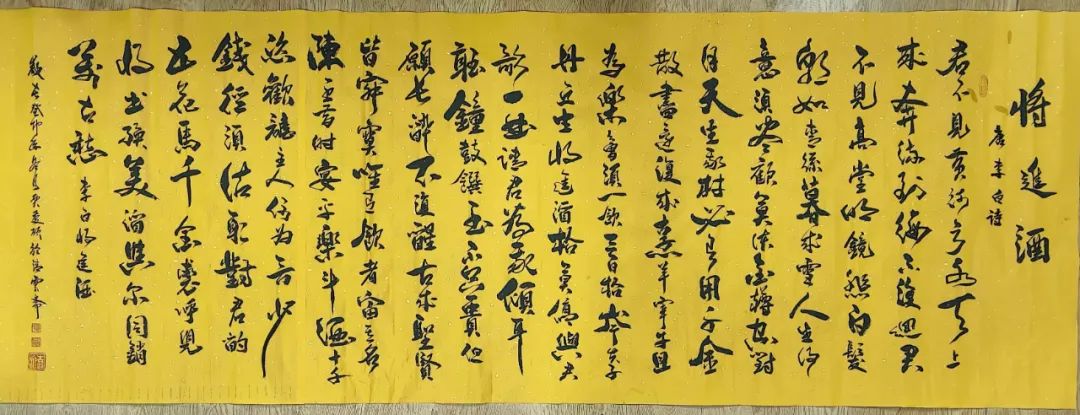 将進酒
唐李白詩
君不見黄河之水天上
来奔流到海不復迴君
不見高堂明鏡悲白髮
朝如青絲暮来雪人生得
意須尽歡莫使金樽空對
月天生我材必有用千金
散盡還復来烹羊宰牛且
為樂會須一飲三百杯岑夫子
丹丘生将進酒杯莫停與君
歌一曲請君為我傾耳
聽鐘鼓饌玉不足貴但
願長醉不復醒古来聖賢
皆寂寞唯有飲者留其名
陳王昔時宴平樂斗酒十千
恣歡謔主人何為言少
錢徑須沽取對君酌
五花馬千金裘呼兒
将出換美酒與尔同銷
萬古愁 李白将進酒
歲在癸卯年冬月